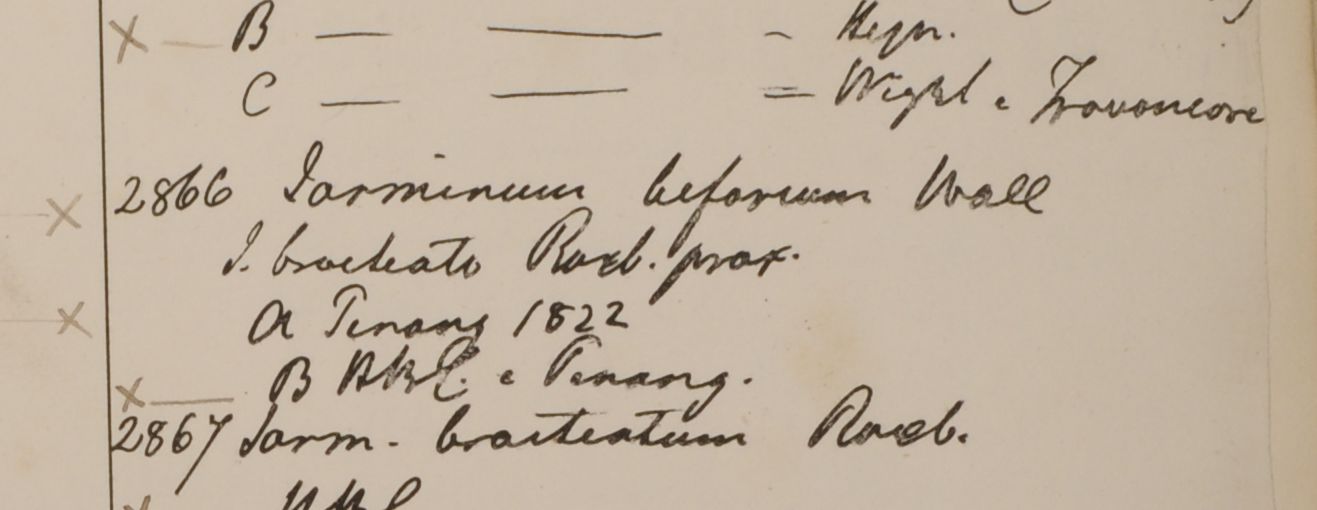 B — — - Heyn.
C — — = Wight e Travancore
2866 Jasminum bifarium Wall
J. bracteato Roxb. prox.
A Penang 1822
B HBC. e Penang.
2867 Jasm. bracteatum Roxb.
HBC